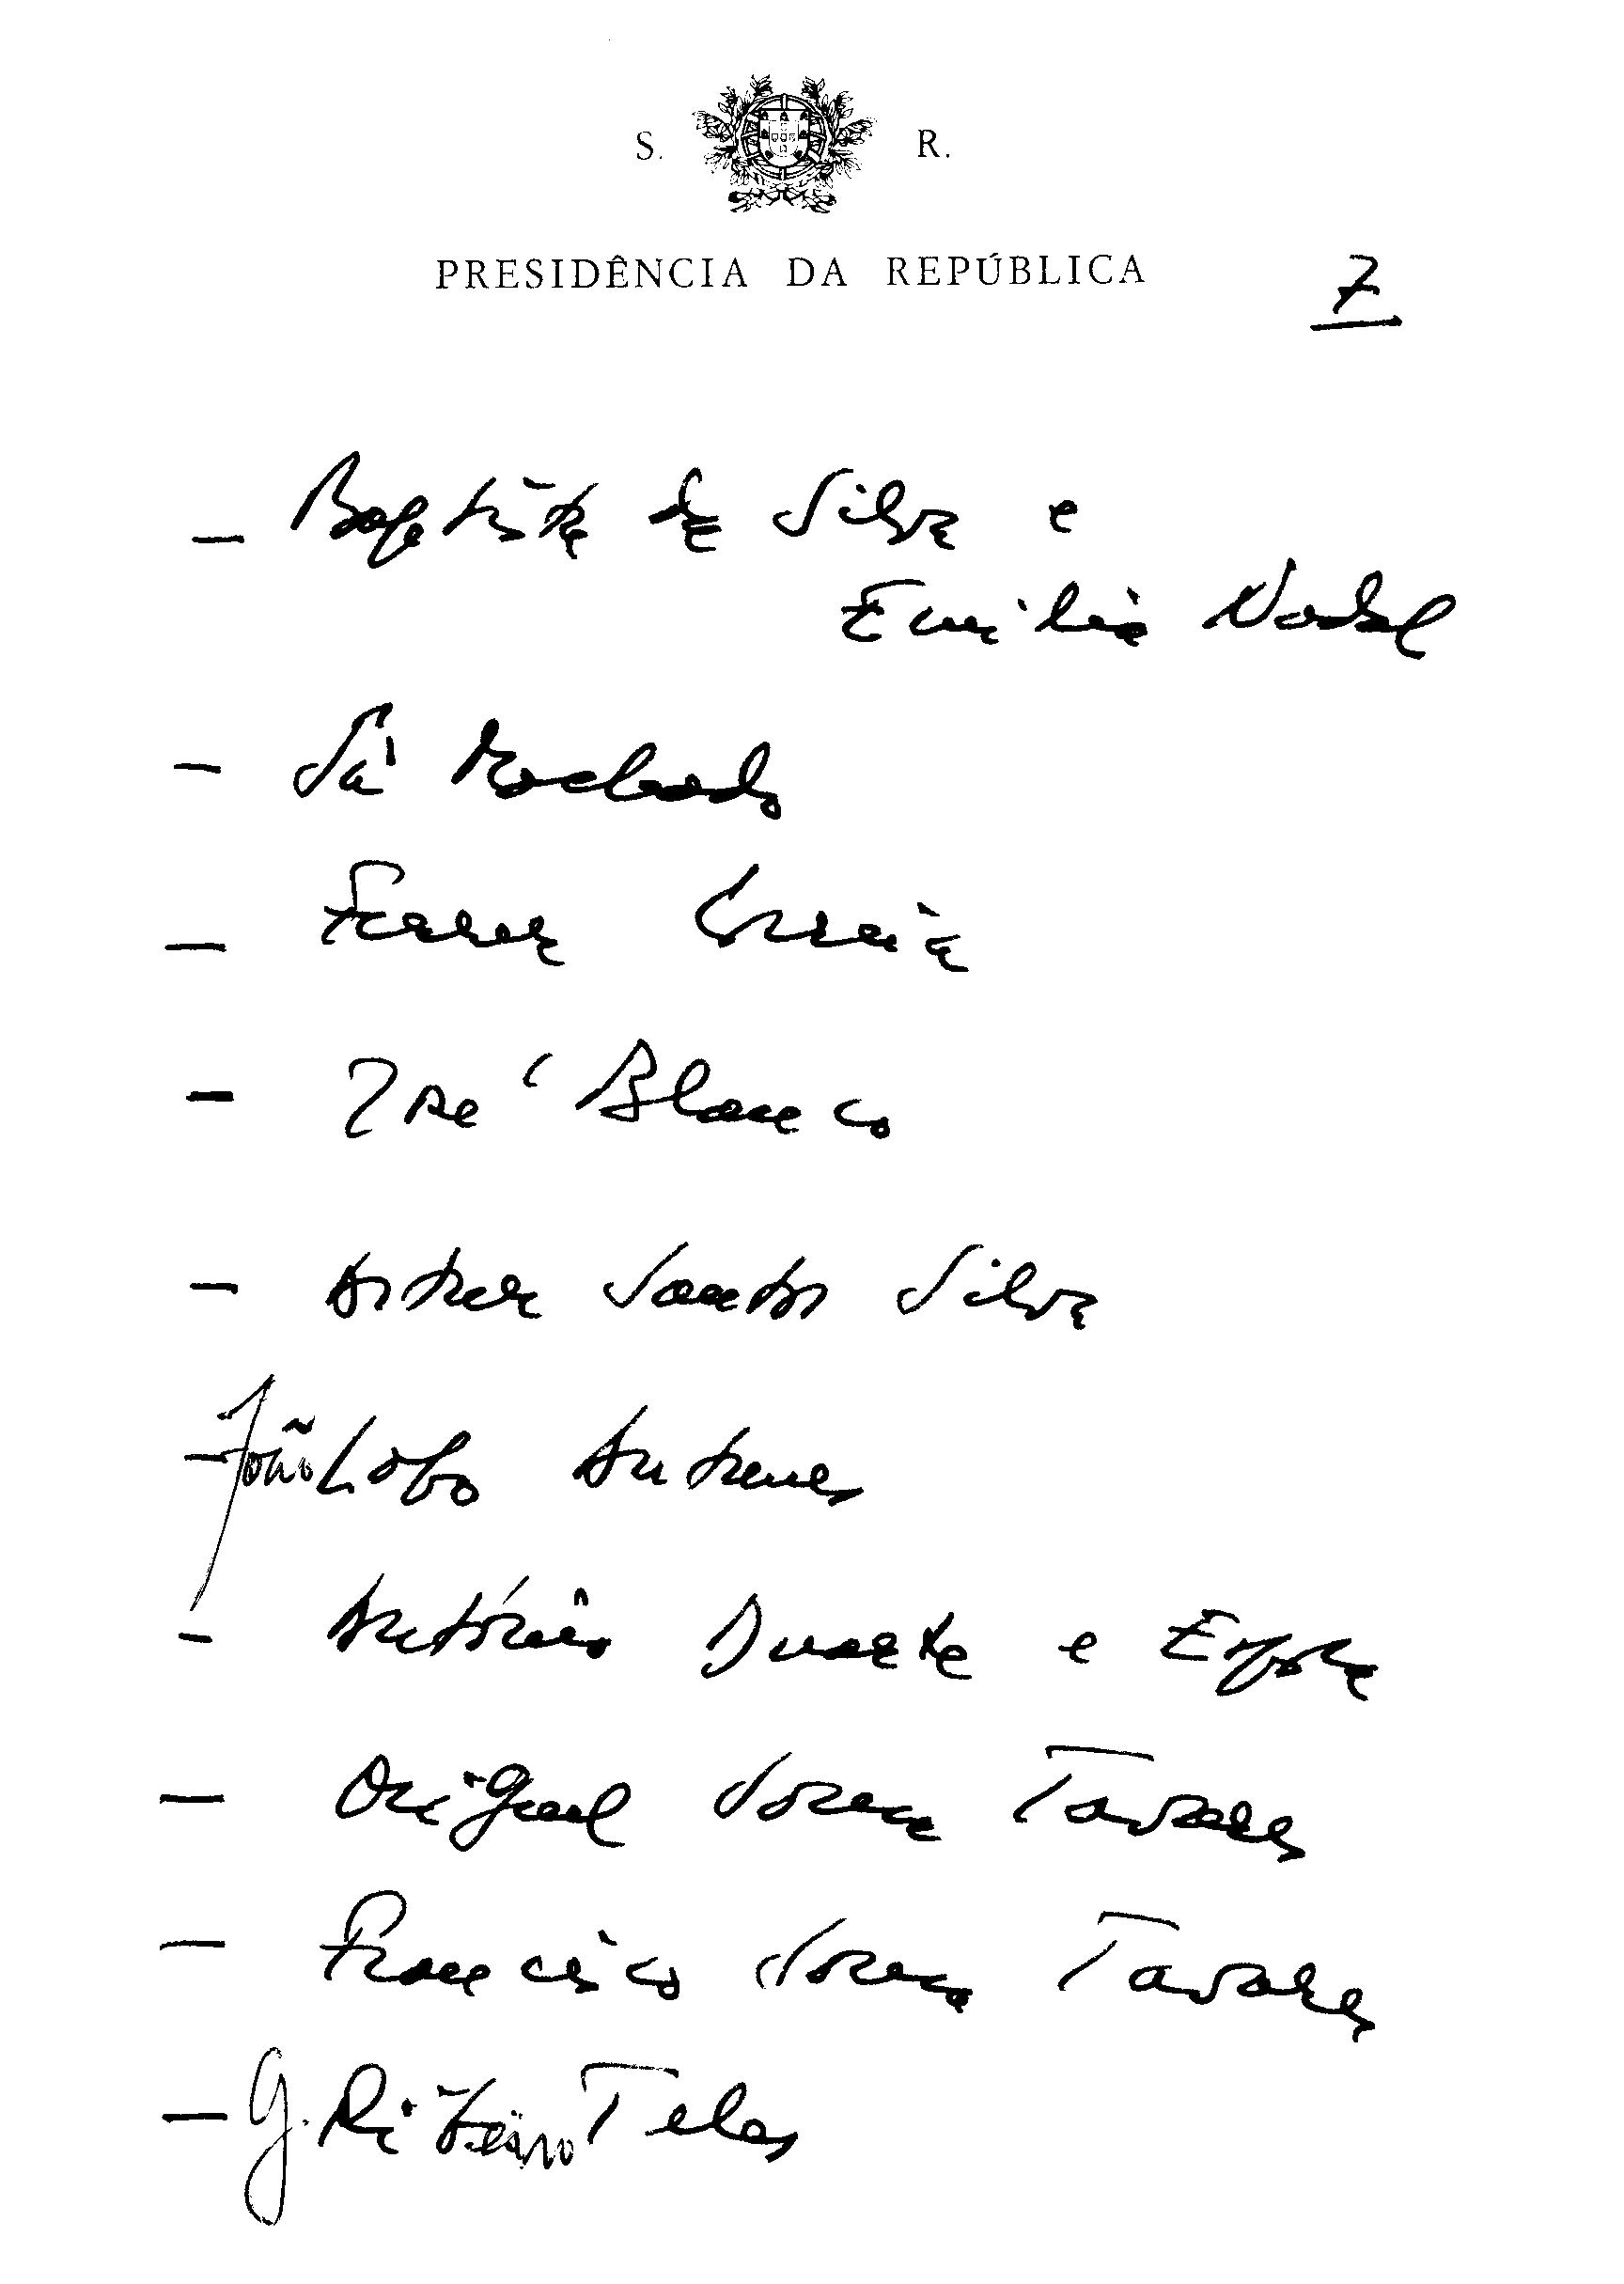 S. R.
PRESIDÊNCIA DA REPÚBLICA
7
- Baptista da Silva e
Emilia Nadal
- Sá Machado
- Ferrer Correia
- José Blanco
- Artur Santos Silva
- João Lobo Antunes
- António Duarte e Esposa
- Miguel Sousa Tavares
- Francisco Sousa Tavares
- G. Ribeiro Teles